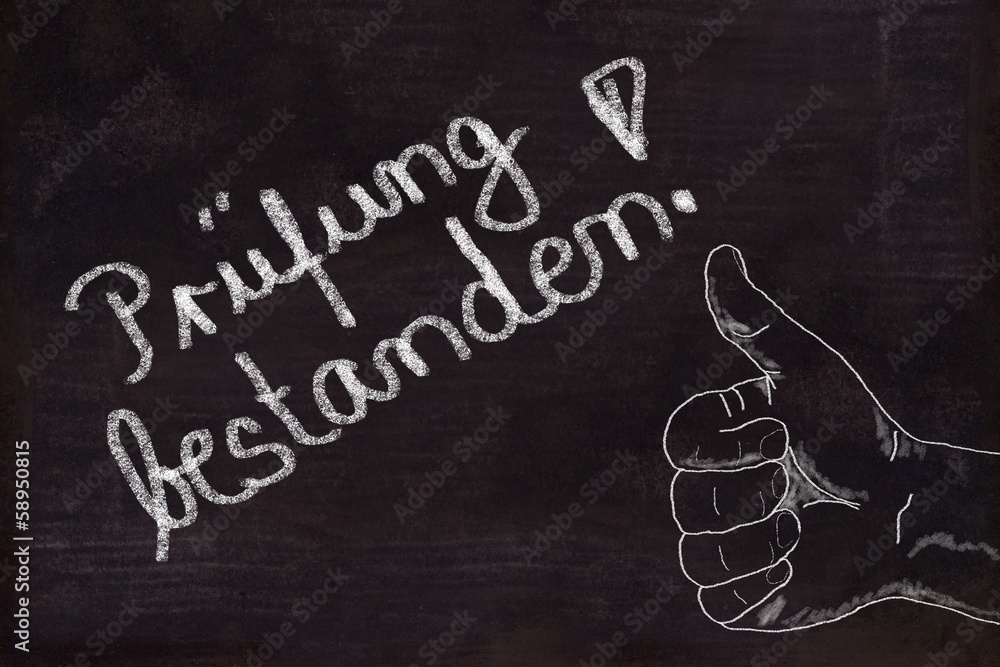 Prüfung
bestanden!
Adobe Stock | #58950815